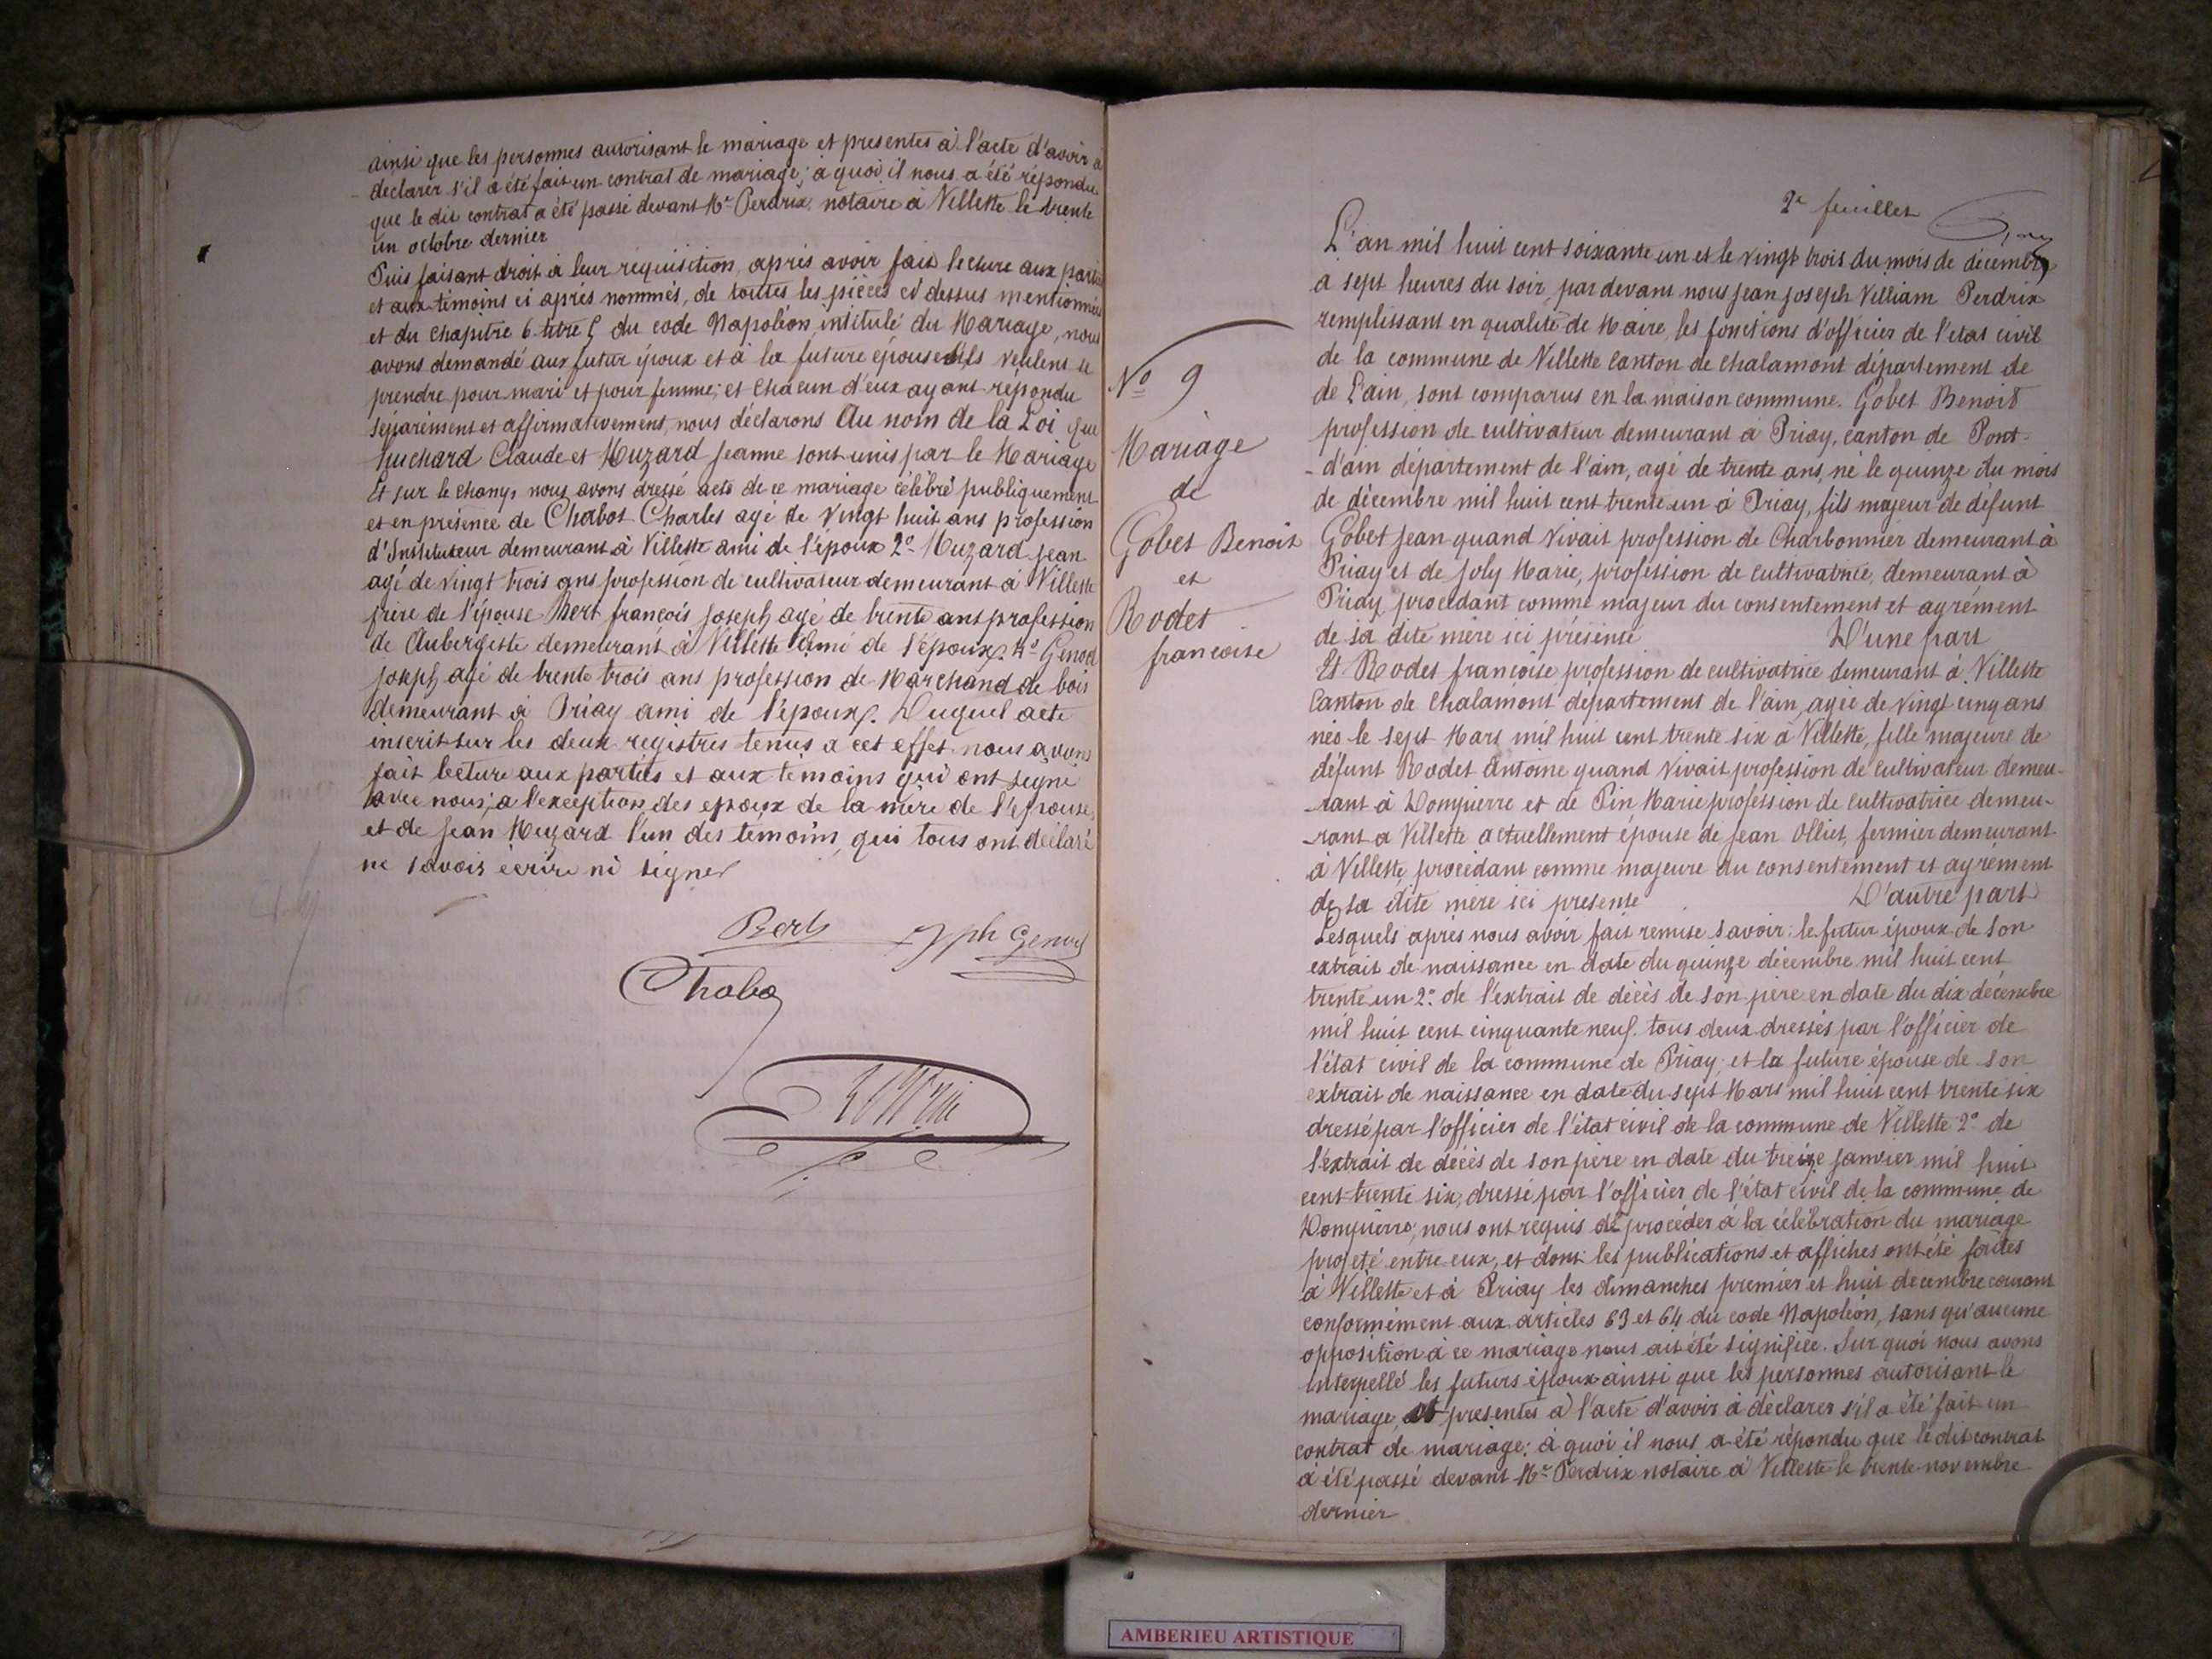 ainsi que les personnes autorisant le mariage et presentes à l'acte d'avoir à
déclarer s'il a été fait un contrat de mariage; à quoi il nous a été répondu
que le dit contrat a été passé devant Me Perdrix notaire à Villette le trente
un octobre dernier
Puis faisant droit à leur réquisition, après avoir fait lecture aux parties
et aux témoins ci après nommés, de toutes les pièces ci dessus mentionnées
et du chapitre 6 titre 5 du code Napoléon, intitulé du Mariage, nous
avons demandé aux futur époux et à la future épouse s'ils veulent se
prendre pour mari et pour femme; et chacun d'eux ayant répondu
séparément et affirmativement, nous déclarons Au nom de la Loi que
huchard Claude et Muzard Jeanne sont unis par le Mariage
Et sur le champ, nous avons dressé acte de ce mariage célébré publiquement
et en présence de Chabot Charles agé de vingt huit ans profession
d'Instituteur demeurant à Villette ami de l'époux 2º Muzard Jean
agé de vingt trois ans profession de cultivateur demeurant à Villette
frère de l'épouse Bert françois Joseph agé de trente ans profession
de Aubergiste demeurant à Villette ami de l'époux. 4º Genod
Joseph agé de trente trois ans profession de Marchand de bois
demeurant à Priay ami de l'époux. Duquel acte
inscrit sur les deux registres tenus a cet effet nous avons
fait lecture aux parties et aux témoins qui ont signé
avec nous, a l'exception des epoux de la mère de l'épouse,
et de Jean Muzard l'un des temoins, qui tous ont déclaré
ne savoir écrire ni signer
Bert
Jph Genod
Chabo
2e feuillet
Nº 9
Mariage
de
Gobet Benoit
et
Rodet
françoise
L'an mil huit cent soixante un et le vingt trois du mois de décembre
a sept heures du soir, par devant nous Jean Joseph Villiam Perdrix
remplissant en qualité de Maire, les fonctions d'officier de l'état civil
de la commune de Villette canton de chalamont département de
de l'ain, sont comparus en la maison commune. Gobet Benoit
profession de cultivateur demeurant à Priay, canton de Pont-
-d'ain département de l'ain, agé de trente ans, né le quinze du mois
de décembre mil huit cent trente un à Priay, fils majeur de défunt
Gobet Jean quand vivait profession de Charbonnier demeurant à
Priay et de Joly Marie, profession de cultivatrice, demeurant à
Priay procédant comme majeur du consentement et agrément
de sa dite mère ici présente D'une part
Et Rodet françoise profession de cultivatrice demeurant à Villette
Canton de Chalamont département de l'ain, agée de vingt cinq ans
née le sept Mars mil huit cent trente six à Villette, fille majeure de
défunt Rodet Antoine quand vivait profession de cultivateur demeu-
-rant à Dompierre et de Pin Marie profession de cultivatrice demeu-
-rant a Villette actuellement épouse de Jean Olliet, fermier demeurant
à Villette, procédant comme majeure du consentement et agrément
de sa dite mère ici présente D'autre part
Lesquels après nous avoir fait remise savoir: le futur époux de son
extrait de naissance en date du quinze décembre mil huit cent
trente un 2º de l'extrait de décès de son père en date du dix décembre
mil huit cent cinquante neuf. tous deux dressés par l'officier de
l'état civil de la commune de Priay, et la future épouse de son
extrait de naissance en date du sept Mars mil huit cent trente six
dressé par l'officier de l'état civil de la commune de Villette 2º de
l'extrait de décès de son père en date du treize janvier mil huit
cent trente six, dressé par l'officier de l'état civil de la commune de
Dompierre, nous ont requis de procéder à la célébration du mariage
projeté entre eux, et dont les publications et affiches ont été faites
à Villette et à Priay les dimanches premier et huit decembre courant
conformément aux articles 63 et 64 du code Napoléon, sans qu'aucune
opposition à ce mariage nous ait été signifiée. Sur quoi nous avons
interpellé les futurs époux ainsi que les personnes autorisant le
mariage, et presentes à l'acte d'avoir à déclarer s'il a été fait un
contrat de mariage; à quoi il nous a été répondu que le dit contrat
a été passé devant Me Perdrix notaire à Villette le trente novembre
dernier
AMBERIEU ARTISTIQUE